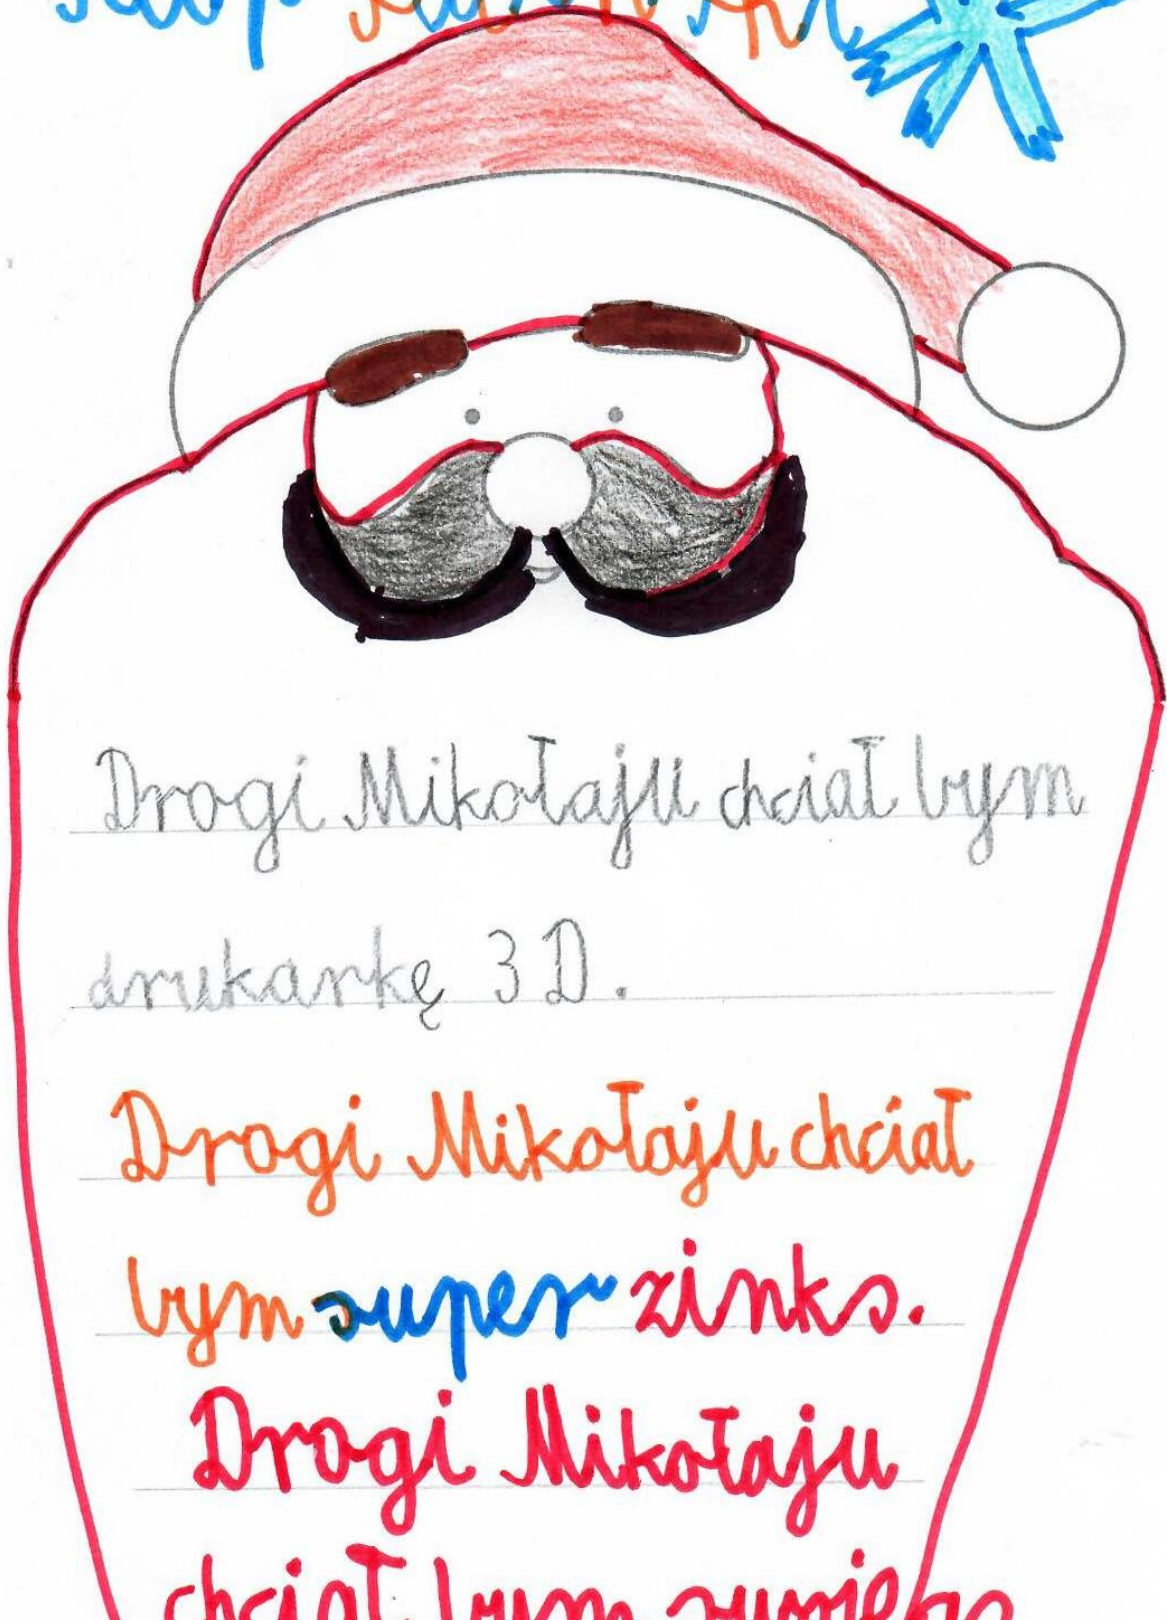 Drogi Mikołaju chciał bym
drukarkę 3D.
Drogi Mikołaju chciał
bym super zinks.
Drogi Mikołaju
chciał bym